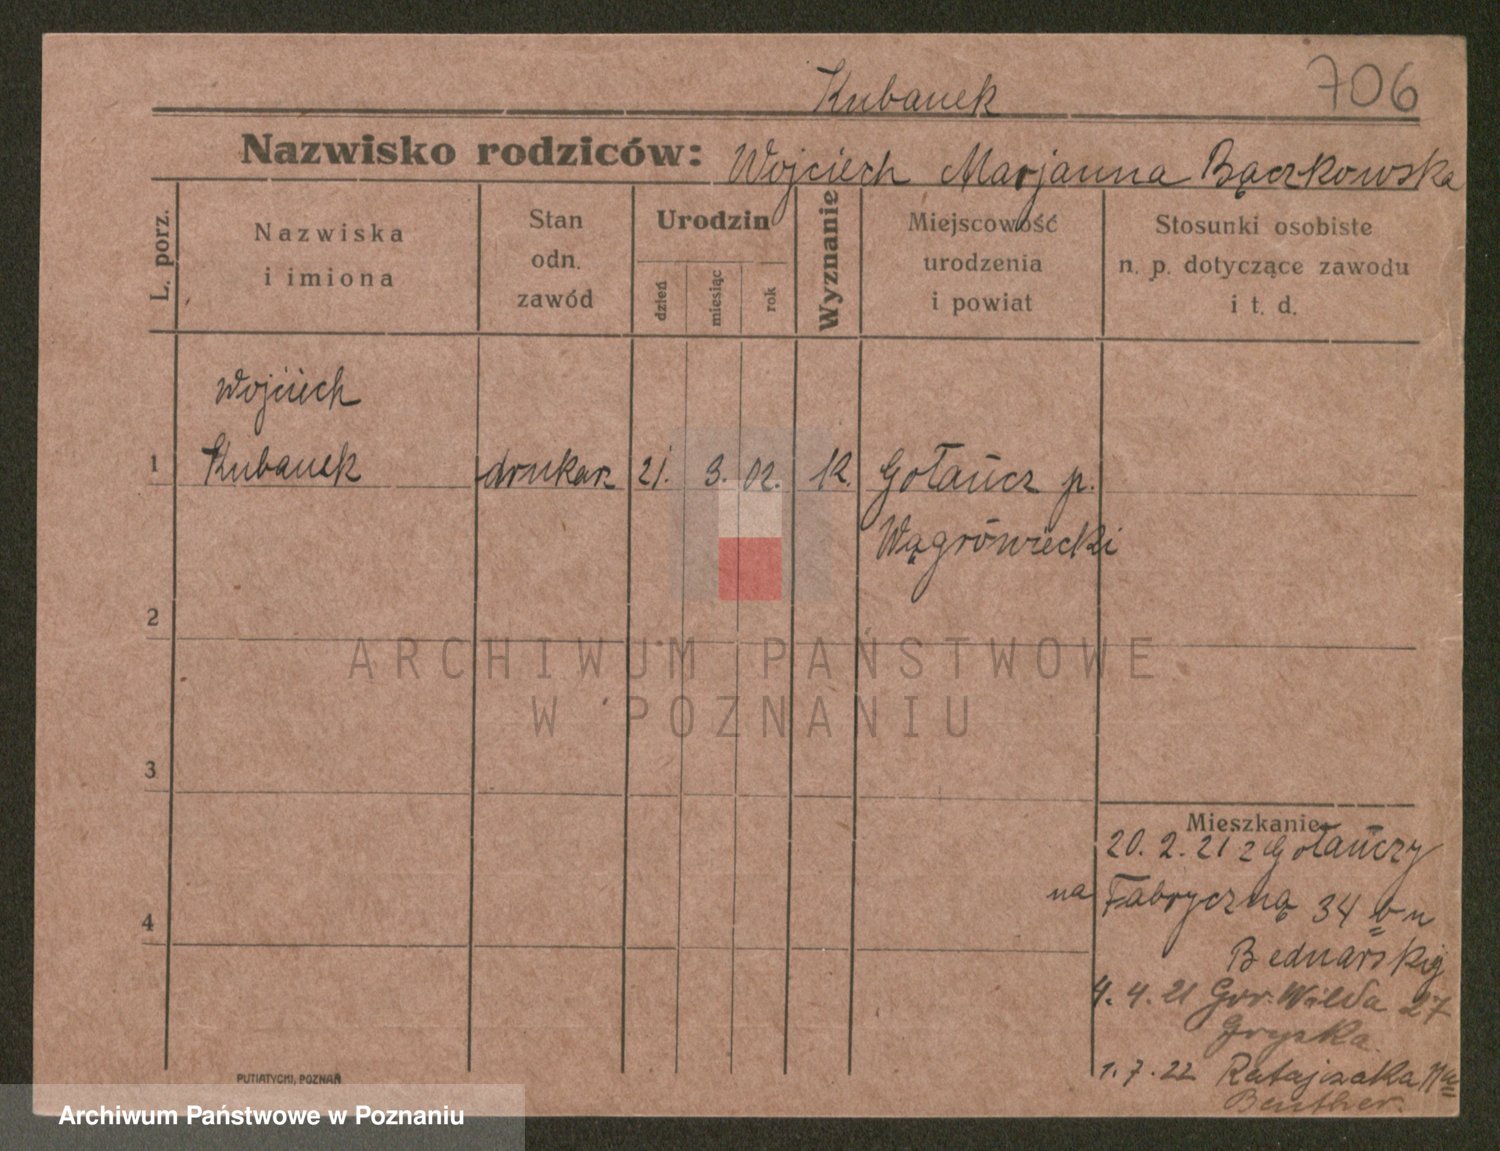 Kubanek
706
Nazwisko rodziców: Wojciech Marjanna Bączkowska
L. porz.
Nazwiska
i imiona
Stan
odn.
zawód
Urodzin
dzień
miesiąc
rok
Wyznanie
Miejscowość
urodzenia
i powiat
Stosunki osobiste
n. p. dotyczące zawodu
i t. d.
Wojciech
1 Kubanek drukarz 21. 3. 02. K. Gołańcz p.
Wągrówiecki
2
ARCHIWUM PAŃSTWOWE
W POZNANIU
3
Mieszkanie
20. 2. 21 z Gołańczy
4
na Fabryczną 34 b u
Bednarskiej
4. 4. 21 Gór. Wilda 27
1. 7. 22 Ratajczaka
Beuther.
PUTIATYCKI, POZNAŃ
Archiwum Państwowe w Poznaniu